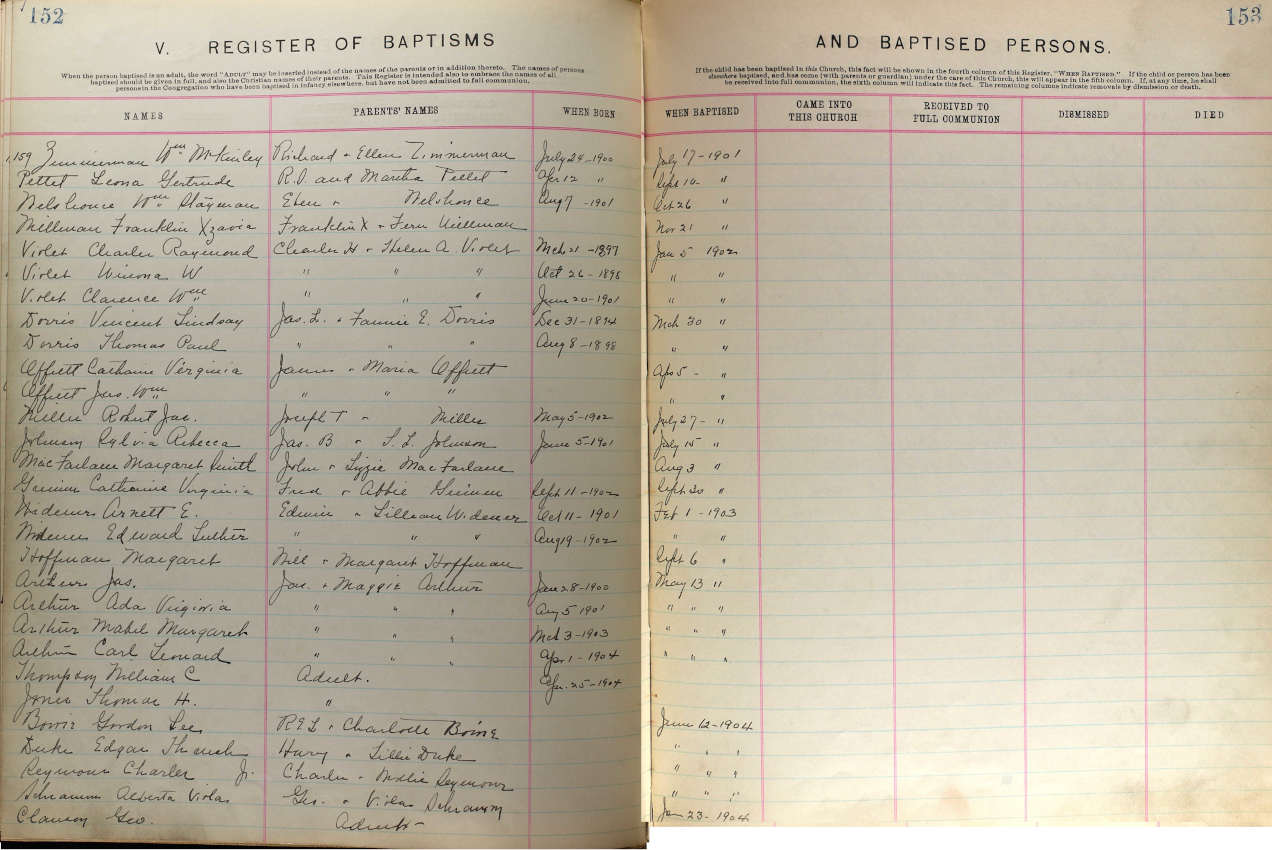 152
V. REGISTER OF BAPTISMS
When the person baptised is an adult, the word "ADULT" may be inserted instead of the names of the parents or in addition thereto. The names of persons
baptised should be given in full, and also the Christian names of their parents. This Register is intended also to embrace the names of all
persons in the Congregation who have been baptised in infancy elsewhere, but have not been admitted to full communion.
153
AND BAPTISED PERSONS.
If the child has been baptised in this Church, this fact will be shown in the fourth column of this Register, "WHEN BAPTISED." If the child or person has been
elsewhere baptised, and has come (with parents or guardian) under the care of this Church, this will appear in the fifth column. If, at any time, he shall
be received into full communion, the sixth column will indicate this fact. The remaining columns indicate removals by dismission or death.
NAMES PARENTS' NAMES WHEN BORN WHEN BAPTISED CAME INTO THIS CHURCH RECEIVED TO FULL COMMUNION DISMISSED DIED
159 Zimmerman Wm McKinley Richard & Ellen Zimmerman July 24-1900 July 17-1901
Pettet Leona Gertrude R.O. and Martha Pettet Apr 12 " Sept 10 "
Welshonce Wm Stayman Eben & Welshonce Aug 7-1901 Oct 26 "
Millman Franklin Xzavia Franklin X & Fern Millman Nov 21 "
Violet Charles Raymond Charles H & Helen A. Violet Mch 21-1897 Jan 5 1902
Violet Winona W " " " Oct 26-1898 " "
Violet Clarence Wm " " " June 20-1901 " "
Dorris Vincent Lindsay Jas. L. & Fannie E. Dorris Dec 31-1894 Mch 30 "
Dorris Thomas Paul " " " Aug 8-1898 " "
Offutt Catharine Virginia James & Maria Offutt Apr 5 - "
Offutt Jas. Wm " " " " "
Miller Robert Jac. Joseph T & Miller May 5-1902 July 27- "
Johnson Sylvia Rebecca Jas. B & S. L. Johnson June 5-1901 July 15 "
MacFarlane Margaret John & Lizzie MacFarlane Aug 3 "
Grimm Catharine Virginia Fred & Abbie Grimm Sept 11-1902 Sept 20 "
Widener Arnett E. Edwin & Lillian Widener Oct 11-1901 Feb 1-1903
Widener Edward Luther " " " Aug 19-1902 " "
Hoffman Margaret Will & Margaret Hoffman Sept 6 "
Arthur Jas. Jas. & Maggie Arthur Jan 28-1900 May 13 "
Arthur Ada Virginia " " " Aug 5 1901 " " "
Arthur Mabel Margaret " " " Mch 3-1903 " " "
Arthur Carl Leonard " " " Apr 1-1904 " " "
Thompson William C Adult. Apr. 25-1904
Jones Thomas H. "
Bowie Gordon Lee R E L & Charlotte Bowie June 12-1904
Duke Edgar Harry & Lillie Duke " " "
Seymour Charles Jr. Charles & Mollie Seymour " " "
Schramm Alberta Violas Geo. & Violas Schramm " " "
Clawson Geo. Adult - Jan 23-1904